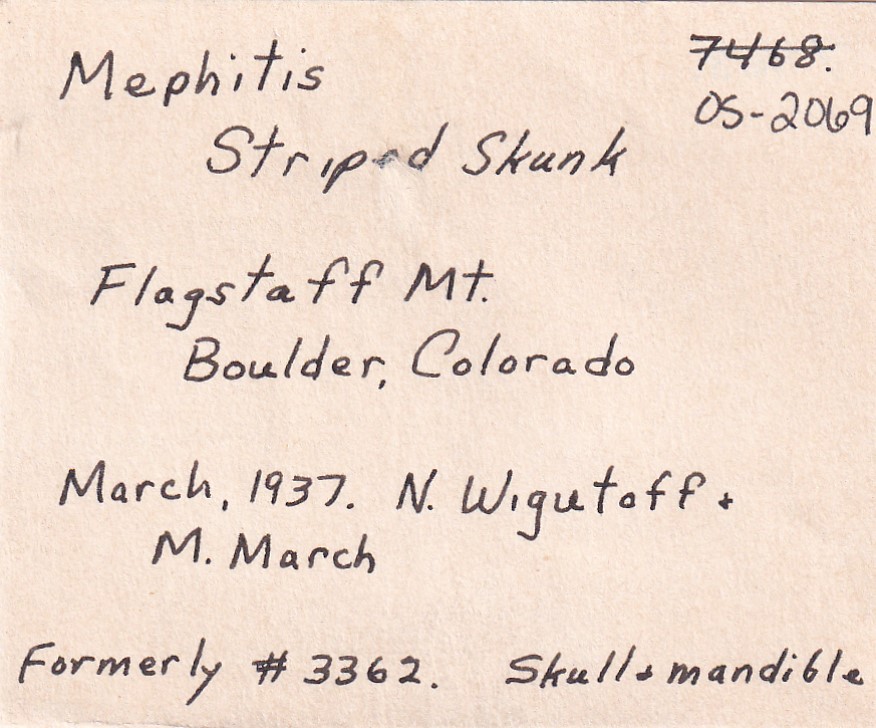 Mephitis
7468.
OS-2069
Striped Skunk
Flagstaff Mt.
Boulder, Colorado
March, 1937. N. Wigutoff +
M. March
Formerly # 3362. Skull + mandible